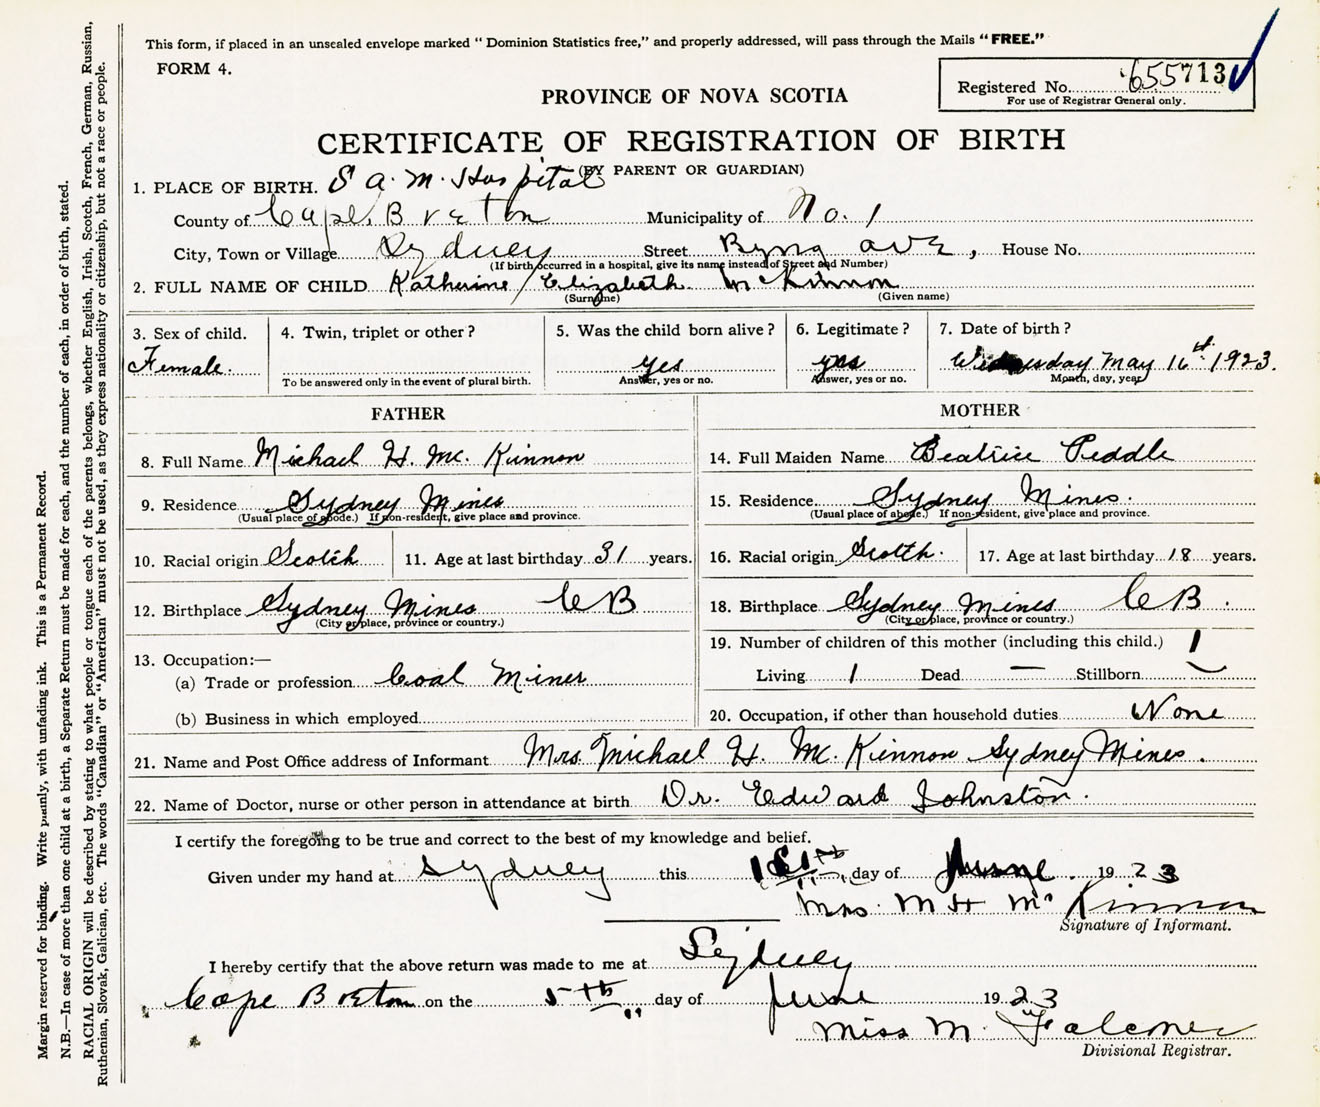 This form, if placed in an unsealed envelope marked “ Dominion Statistics free,” and properly addressed, will pass through the Mails “ FREE.”
FORM 4.
Registered No. 655713
For use of Registrar General only.
PROVINCE OF NOVA SCOTIA
CERTIFICATE OF REGISTRATION OF BIRTH
(BY PARENT OR GUARDIAN)
1. PLACE OF BIRTH. S A. M. Hospital
County of Cape Breton Municipality of No. 1
City, Town or Village Sydney Street Byng ave, House No.
(If birth occurred in a hospital, give its name instead of Street and Number)
2. FULL NAME OF CHILD Katherine / Elizabeth McKinnon
(Surname) (Given name)
3. Sex of child. Female.
4. Twin, triplet or other ?
To be answered only in the event of plural birth.
5. Was the child born alive ? yes
Answer, yes or no.
6. Legitimate ? yes
Answer, yes or no.
7. Date of birth ?
Wednesday May 16 1923.
Month, day, year
FATHER
8. Full Name Michael H. Mc. Kinnon
9. Residence Sydney Mines
(Usual place of abode.) If non-resident, give place and province.
10. Racial origin Scotch 11. Age at last birthday 31 years.
12. Birthplace Sydney Mines C B
(City or place, province or country.)
13. Occupation:—
(a) Trade or profession Coal Miner
(b) Business in which employed
MOTHER
14. Full Maiden Name Beatrice Peddle
15. Residence Sydney Mines.
(Usual place of abode.) If non-resident, give place and province.
16. Racial origin Scotch. 17. Age at last birthday 18 years.
18. Birthplace Sydney Mines C B .
(City or place, province or country.)
19. Number of children of this mother (including this child.) 1
Living 1 Dead — Stillborn —
20. Occupation, if other than household duties None
21. Name and Post Office address of Informant Mrs. Michael H. Mc. Kinnon Sydney Mines .
22. Name of Doctor, nurse or other person in attendance at birth Dr. Edward Johnston.
I certify the foregoing to be true and correct to the best of my knowledge and belief.
Given under my hand at Sydney this day of June . 1923
Mrs. M H Mc Kinnon
Signature of Informant.
I hereby certify that the above return was made to me at Sydney
Cape Breton on the 5th day of June 1923
Miss M. Falconer
Divisional Registrar.
Margin reserved for binding. Write plainly, with unfading ink. This is a Permanent Record.
N.B.—In case of more than one child at a birth, a Separate Return must be made for each, and the number of each, in order of birth, stated.
RACIAL ORIGIN will be described by stating to what people or tongue each of the parents belongs, whether English, Irish, Scotch, French, German, Russian,
Ruthenian, Slovak, Galician, etc. The words “Canadian” or “American” must not be used, as they express nationality or citizenship, but not a race or people.